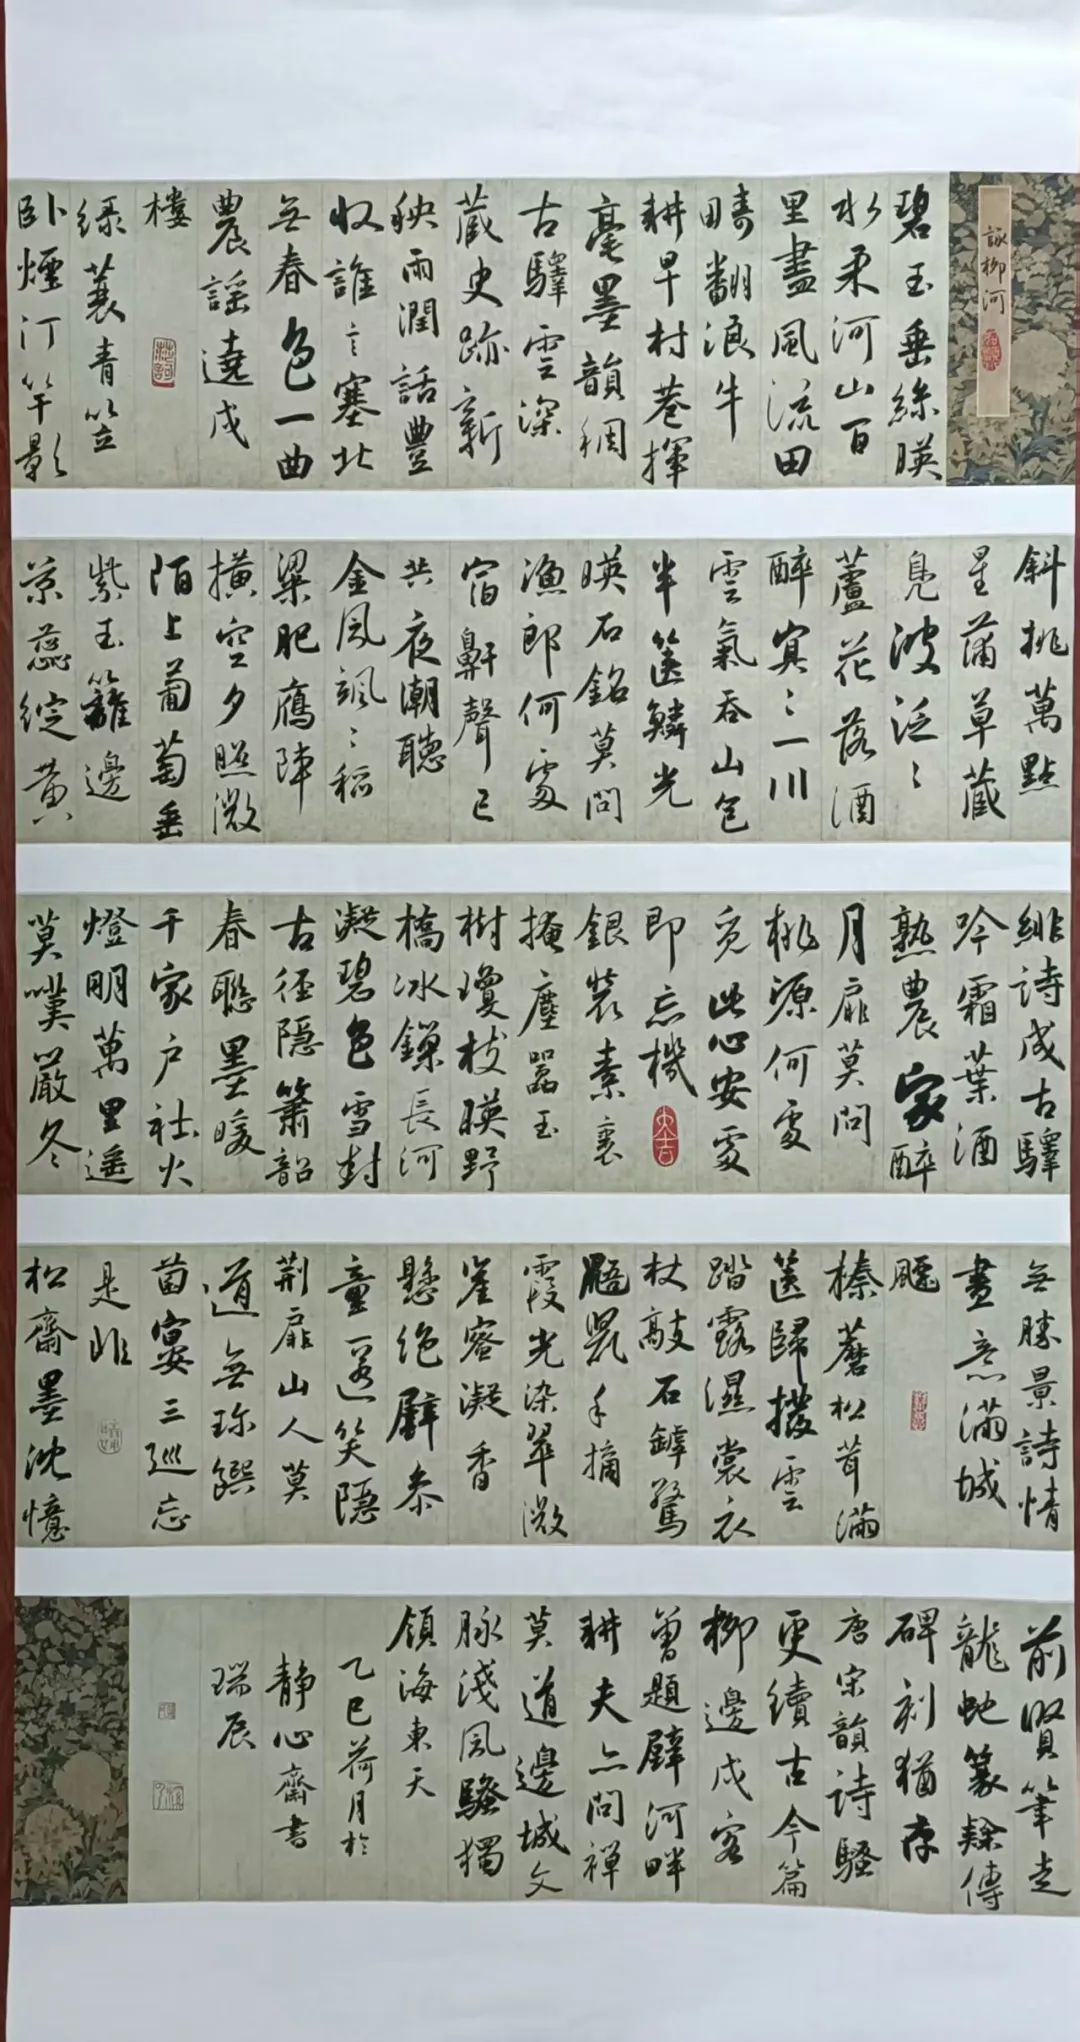 詠柳河
碧玉垂絲暎
水柔河山百
里盡風流田
疇翻浪牛
耕早村巷揮
毫墨韻稠
古驛雲深
藏史跡新
秧雨潤話豐
收誰言塞北
無春色一曲
農謡遶戍
樓
绿蓑青笠
卧煙汀竿影
斜挑萬點
星蒲草藏
鳧波泛〻
蘆花落酒
醉冥〻一川
雲氣吞山色
半篋鱗光
暎石銘莫問
漁郎何處
宿鼾聲已
共夜潮聽
金風颯〻稻
粱肥鴈陣
横空夕照微
陌上葡萄垂
紫玉籬邊
京蕊綻黄
緋詩成古驛
吟霜葉酒
熟農家醉
月扉莫問
桃源何處
覓此心安處
即忘機
銀裝素裹
掩塵嚣玉
樹瓊枝暎野
橋冰鏁長河
凝碧色雪封
古徑隱簫韶
春聯墨暖
千家户社火
燈明萬里遥
莫嘆嚴冬
無勝景詩情
畫意滿城
飄
榛蘑松茸滿
篋歸撥雲
踏露濕裳衣
杖敲石罅驚
鼯鼠手摘
霞光染翠微
崖蜜凝香
懸絶壁参
童一笑隱
荆扉山人莫
道無珎饌
菌宴三巡忘
是非
松齋墨沈憶
前賢筆走
龍虵篆隸傳
碑刻猶存
唐宋韻詩騷
更續古今篇
柳邊戍客
曾題壁河畔
耕夫亦問禅
莫道邊城文
脉淺風騷獨
領海東天
乙巳荷月於
静心齋書
瑞辰